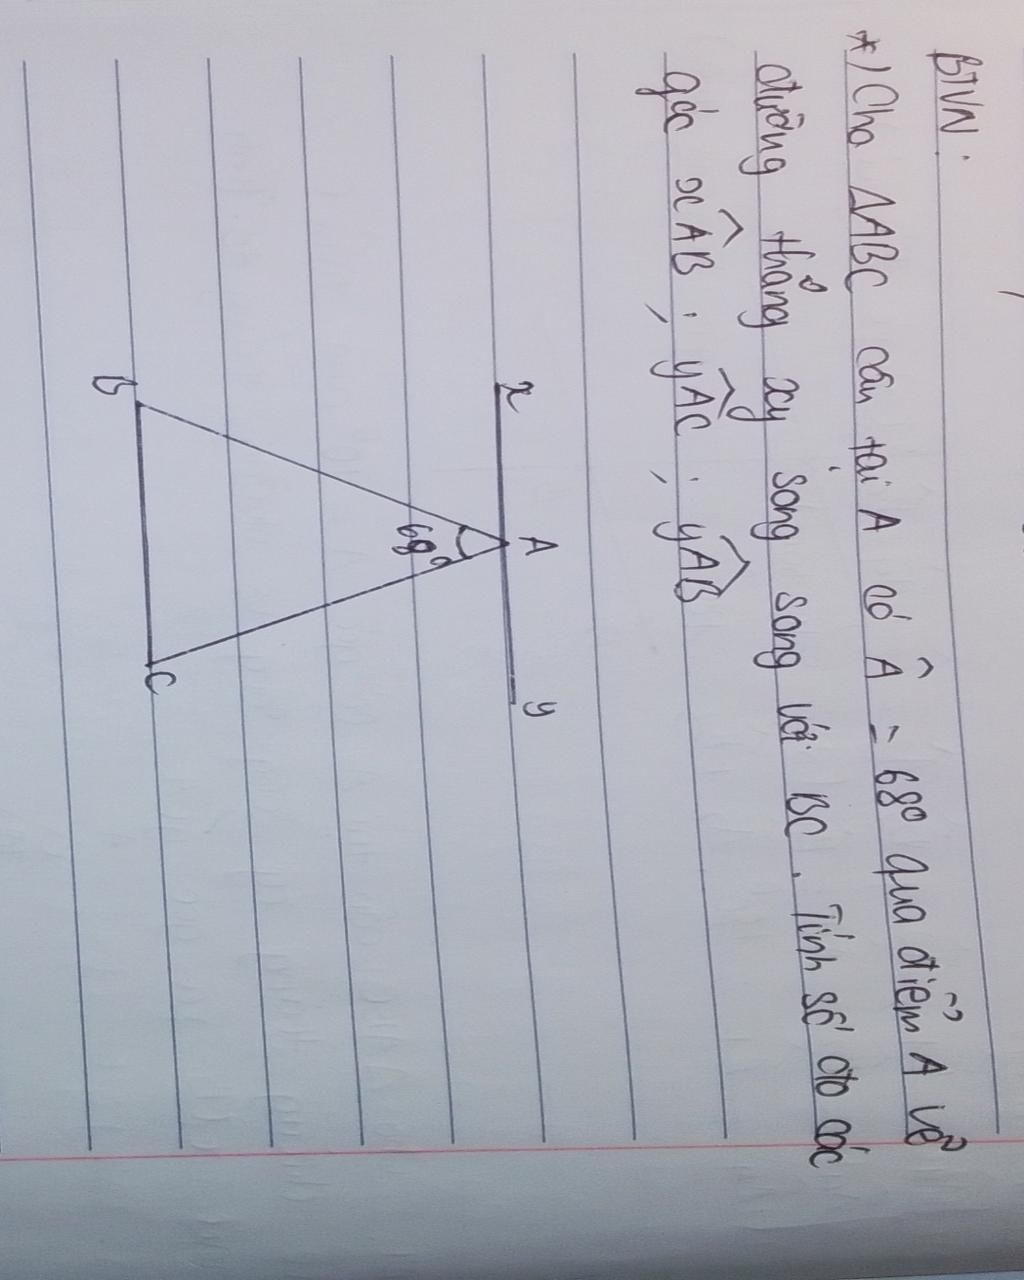 BTVN:
*) Cho ΔABC cân tại A có Â = 68° qua điểm A vẽ
đường thẳng xy song song với BC. Tính số đo các
góc xÂB ; yÂC ; yÂB
x A y
68°
B C